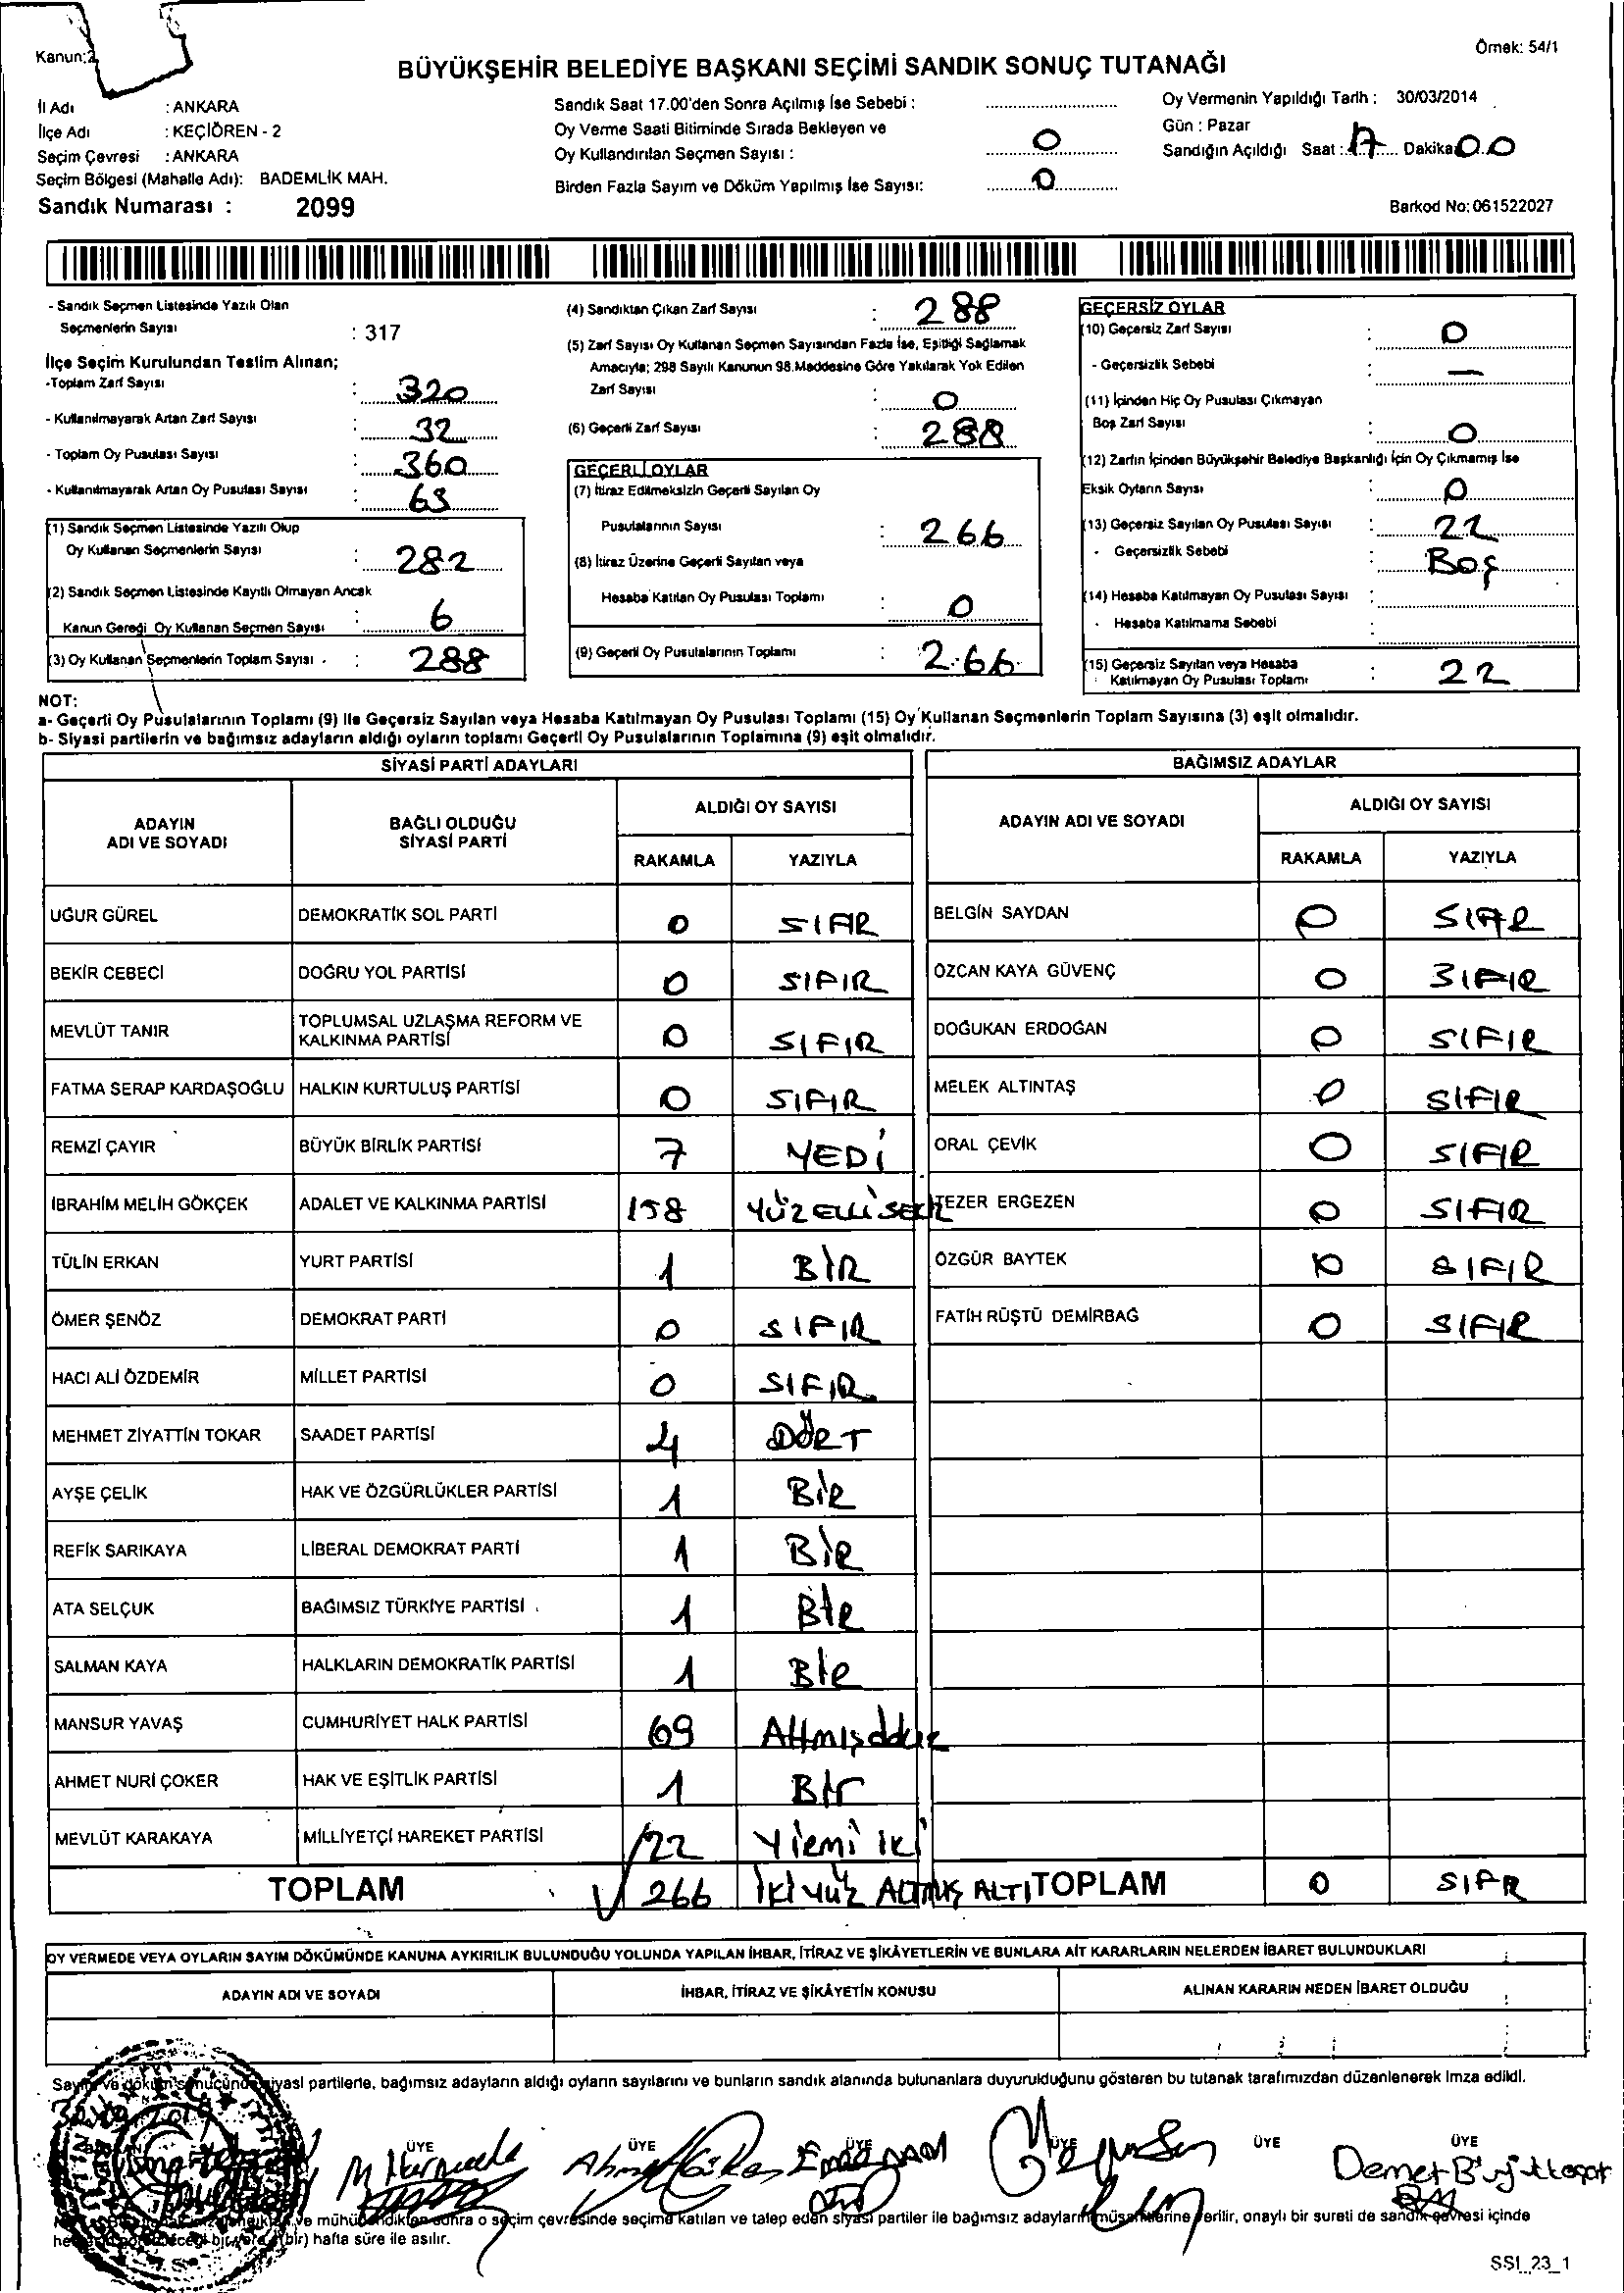 Kanun:2
Örnek: 54/1
BÜYÜKŞEHİR BELEDİYE BAŞKANI SEÇİMİ SANDIK SONUÇ TUTANAĞI
İl Adı : ANKARA
İlçe Adı : KEÇİÖREN - 2
Seçim Çevresi : ANKARA
Seçim Bölgesi (Mahalle Adı): BADEMLİK MAH.
Sandık Numarası : 2099
Sandık Saat 17.00'den Sonra Açılmış İse Sebebi :
Oy Verme Saati Bitiminde Sırada Bekleyen ve
Oy Kullandırılan Seçmen Sayısı : 0
Birden Fazla Sayım ve Döküm Yapılmış İse Sayısı: 0
Oy Vermenin Yapıldığı Tarih : 30/03/2014
Gün : Pazar
Sandığın Açıldığı Saat : 17 Dakika 00
Barkod No: 061522027
- Sandık Seçmen Listesinde Yazılı Olan
Seçmenlerin Sayısı : 317
İlçe Seçim Kurulundan Teslim Alınan;
-Toplam Zarf Sayısı : 320
- Kullanılmayarak Artan Zarf Sayısı : 32
- Toplam Oy Pusulası Sayısı : 360
- Kullanılmayarak Artan Oy Pusulası Sayısı :
(1) Sandık Seçmen Listesinde Yazılı Olup
Oy Kullanan Seçmenlerin Sayısı : 282
(2) Sandık Seçmen Listesinde Kayıtlı Olmayan Ancak
Kanun Gereği Oy Kullanan Seçmen Sayısı : 6
(3) Oy Kullanan Seçmenlerin Toplam Sayısı : 288
(4) Sandıktan Çıkan Zarf Sayısı : 288
(5) Zarf Sayısı Oy Kullanan Seçmen Sayısından Fazla İse, Eşitliği Sağlamak
Amacıyla; 298 Sayılı Kanunun 98.Maddesine Göre Yakılarak Yok Edilen
Zarf Sayısı : 0
(6) Geçerli Zarf Sayısı : 288
GEÇERLİ OYLAR
(7) İtiraz Edilmeksizin Geçerli Sayılan Oy
Pusulalarının Sayısı : 266
(8) İtiraz Üzerine Geçerli Sayılan veya
Hesaba Katılan Oy Pusulası Toplamı : 0
(9) Geçerli Oy Pusulalarının Toplamı : 266
GEÇERSİZ OYLAR
(10) Geçersiz Zarf Sayısı : 0
- Geçersizlik Sebebi : —
(11) İçinden Hiç Oy Pusulası Çıkmayan
Boş Zarf Sayısı : 0
(12) Zarfın İçinden Büyükşehir Belediye Başkanlığı İçin Oy Çıkmamış İse
Eksik Oyların Sayısı : 0
(13) Geçersiz Sayılan Oy Pusulası Sayısı : 22
- Geçersizlik Sebebi : Boş
(14) Hesaba Katılmayan Oy Pusulası Sayısı :
- Hesaba Katılmama Sebebi :
(15) Geçersiz Sayılan veya Hesaba
Katılmayan Oy Pusulası Toplamı : 22
NOT:
a- Geçerli Oy Pusulalarının Toplamı (9) ile Geçersiz Sayılan veya Hesaba Katılmayan Oy Pusulası Toplamı (15) Oy Kullanan Seçmenlerin Toplam Sayısına (3) eşit olmalıdır.
b- Siyasi partilerin ve bağımsız adayların aldığı oyların toplamı Geçerli Oy Pusulalarının Toplamına (9) eşit olmalıdır.
SİYASİ PARTİ ADAYLARI
ADAYIN ADI VE SOYADI BAĞLI OLDUĞU SİYASİ PARTİ ALDIĞI OY SAYISI
RAKAMLA YAZIYLA
UĞUR GÜREL DEMOKRATİK SOL PARTİ 0 SIFIR
BEKİR CEBECİ DOĞRU YOL PARTİSİ 0 SIFIR
MEVLÜT TANIR TOPLUMSAL UZLAŞMA REFORM VE KALKINMA PARTİSİ 0 SIFIR
FATMA SERAP KARDAŞOĞLU HALKIN KURTULUŞ PARTİSİ 0 SIFIR
REMZİ ÇAYIR BÜYÜK BİRLİK PARTİSİ 7 YEDİ
İBRAHİM MELİH GÖKÇEK ADALET VE KALKINMA PARTİSİ 158 YÜZELLİSEKİZ
TÜLİN ERKAN YURT PARTİSİ 1 BİR
ÖMER ŞENÖZ DEMOKRAT PARTİ 0 SIFIR
HACI ALİ ÖZDEMİR MİLLET PARTİSİ 0 SIFIR
MEHMET ZİYATTİN TOKAR SAADET PARTİSİ 4 DÖRT
AYŞE ÇELİK HAK VE ÖZGÜRLÜKLER PARTİSİ 1 BİR
REFİK SARIKAYA LİBERAL DEMOKRAT PARTİ 1 BİR
ATA SELÇUK BAĞIMSIZ TÜRKİYE PARTİSİ 1 BİR
SALMAN KAYA HALKLARIN DEMOKRATİK PARTİSİ 1 BİR
MANSUR YAVAŞ CUMHURİYET HALK PARTİSİ 69 Altmışdokuz
AHMET NURİ ÇOKER HAK VE EŞİTLİK PARTİSİ 1 Bir
MEVLÜT KARAKAYA MİLLİYETÇİ HAREKET PARTİSİ 22 Yirmi iki
TOPLAM 266 İKİ YÜZ ALTMIŞ ALTI
BAĞIMSIZ ADAYLAR
ADAYIN ADI VE SOYADI ALDIĞI OY SAYISI
RAKAMLA YAZIYLA
BELGİN SAYDAN 0 SIFIR
ÖZCAN KAYA GÜVENÇ 0 SIFIR
DOĞUKAN ERDOĞAN 0 SIFIR
MELEK ALTINTAŞ 0 SIFIR
ORAL ÇEVİK 0 SIFIR
TEZER ERGEZEN 0 SIFIR
ÖZGÜR BAYTEK 0 SIFIR
FATİH RÜŞTÜ DEMİRBAĞ 0 SIFIR
TOPLAM 0 SIFR
OY VERMEDE VEYA OYLARIN SAYIM DÖKÜMÜNDE KANUNA AYKIRILIK BULUNDUĞU YOLUNDA YAPILAN İHBAR, İTİRAZ VE ŞİKÂYETLERİN VE BUNLARA AİT KARARLARIN NELERDEN İBARET BULUNDUKLARI
ADAYIN ADI VE SOYADI İHBAR, İTİRAZ VE ŞİKÂYETİN KONUSU ALINAN KARARIN NEDEN İBARET OLDUĞU
Sayım ve döküm sonucunda siyasi partilerle, bağımsız adayların aldığı oyların sayılarını ve bunların sandık alanında bulunanlara duyurulduğunu gösteren bu tutanak tarafımızdan düzenlenerek imza edildi.
ÜYE ÜYE ÜYE ÜYE ÜYE ÜYE
Demet
ve mühürlendikten sonra o seçim çevresinde seçime katılan ve talep eden siyasi partiler ile bağımsız adayların müşahitlerine verilir, onaylı bir sureti de sandık çevresi içinde
(bir) hafta süre ile asılır.
SSI_23_1